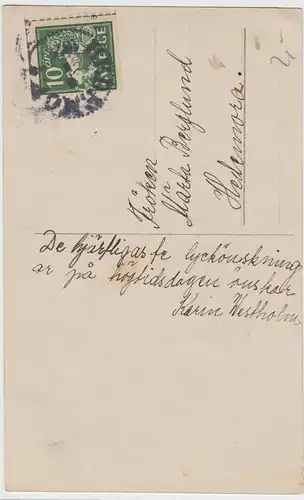 10 ÖRE
SVERIGE
Fröken
Märta Berglund
Hedemora.
De hjärtligaste lyckönskning
ar på högtidsdagen önskar
Karin Westholm